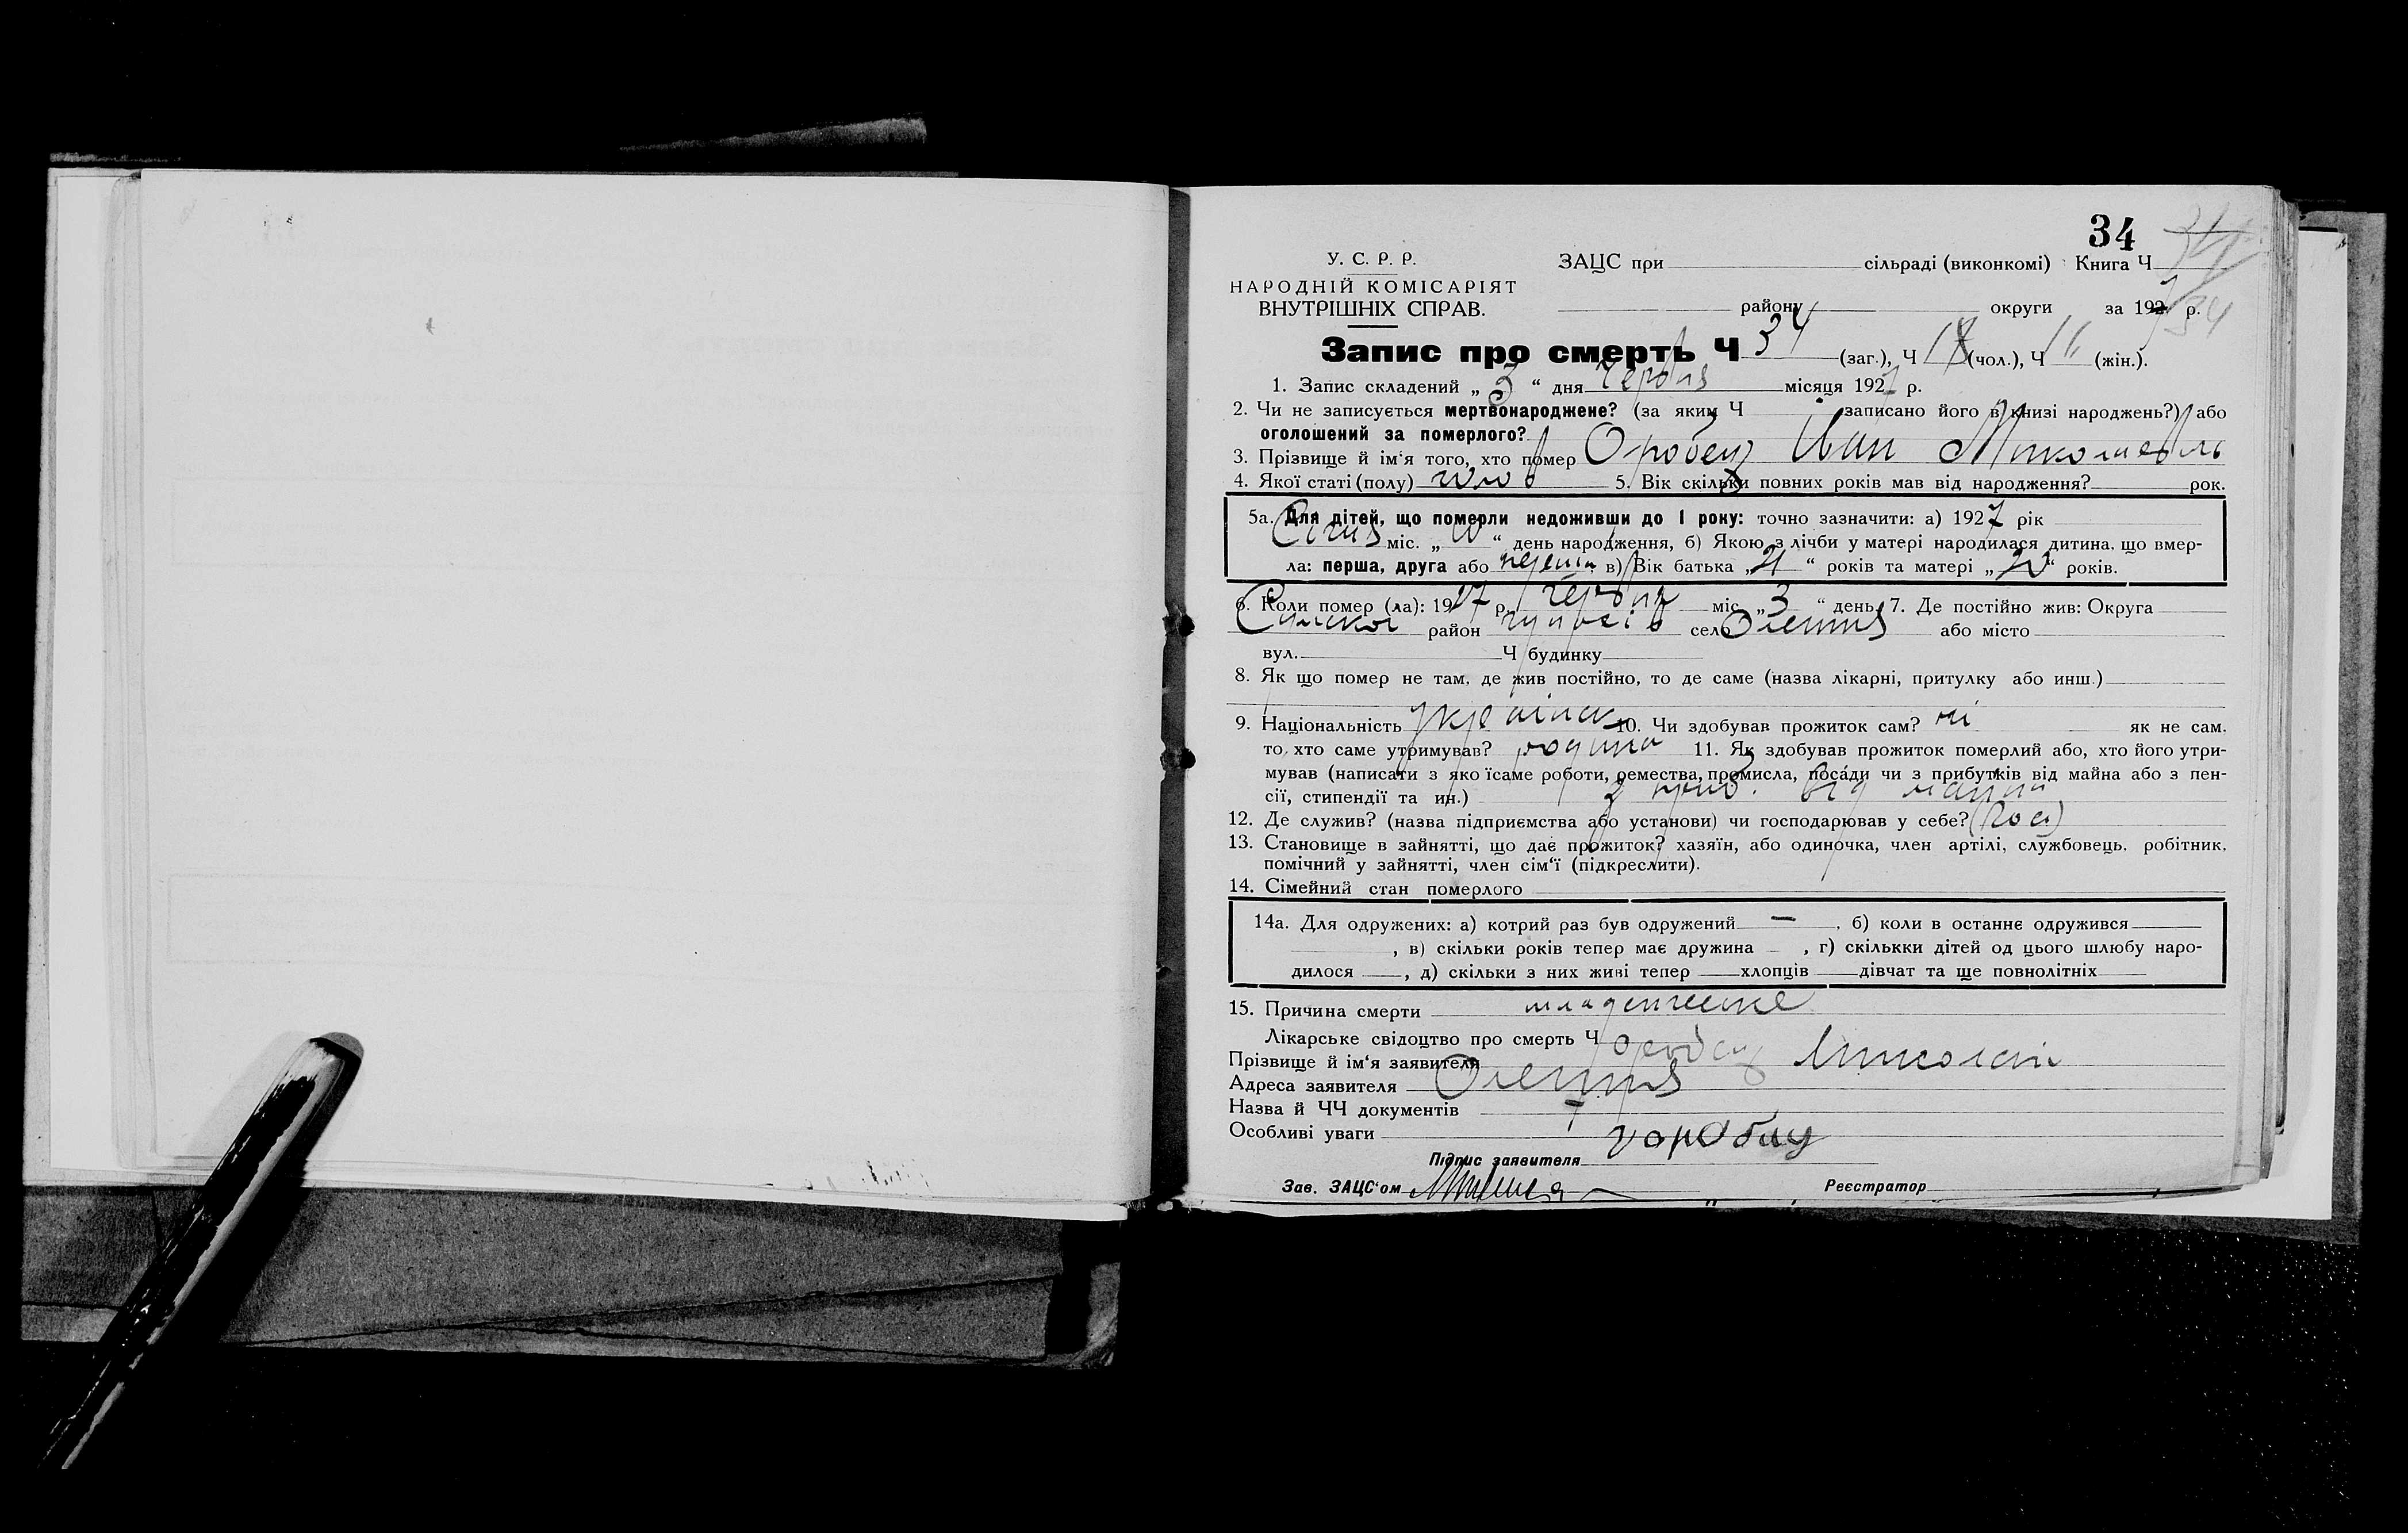 34
У. С. Р. Р.
ЗАЦС при сільраді (виконкомі) Книга Ч
НАРОДНІЙ КОМІСАРІЯТ
ВНУТРІШНІХ СПРАВ.
району округи за 1927 р.
34
Запис про смерть Ч 34 (заг.), Ч 18 (чол.), Ч 16 (жін.).
1. Запис складений „ 3 “ дня червня місяця 1927 р.
2. Чи не записується мертвонароджене? (за яким Ч записано його в книзі народжень?) або
оголошений за померлого?
3. Прізвище й ім‘я того, хто помер Оробец Иван Миколаевич
4. Якої статі (полу) чол 5. Вік скільки повних років мав від народження? рок.
5а. Для дітей, що померли недоживши до 1 року: точно зазначити: а) 1927 рік
Січня міс. „ “ день народження, б) Якою з лічби у матері народилася дитина, що вмер-
ла: перша, друга або перша в) Вік батька „21“ років та матері „ “ років.
6. Коли помер (ла): 1927 р. червня міс „3“ день. 7. Де постійно жив: Округа
Сумської район село або місто
вул. Ч будинку
8. Як що помер не там, де жив постійно, то де саме (назва лікарні, притулку або инш.)
9. Національність 10. Чи здобував прожиток сам? ні як не сам,
то, хто саме утримував? родина 11. Як здобував прожиток померлий або, хто його утри-
мував (написати з яко їсаме роботи, ремества, промисла, посади чи з прибутків від майна або з пен-
сії, стипендії та ин.) від
12. Де служив? (назва підприємства або установи) чи господарював у себе?
13. Становище в зайнятті, що дає прожиток? хазяїн, або одиночка, член артілі, службовець, робітник,
помічний у зайнятті, член сім‘ї (підкреслити).
14. Сімейний стан померлого
14а. Для одружених: а) котрий раз був одружений — , б) коли в останнє одружився
, в) скільки років тепер має дружина – , г) скількки дітей од цього шлюбу наро-
дилося , д) скільки з них живі тепер хлопців дівчат та ще повнолітніх
15. Причина смерти младенческие
Лікарське свідоцтво про смерть Ч
Прізвище й ім‘я заявителя Оробец Миколай
Адреса заявителя
Назва й ЧЧ документів —
Особливі уваги
Підпис заявителя
Зав. ЗАЦС‘ом Реєстратор